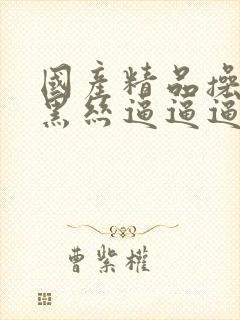 國產精品操
黑絲逼逼逼
曹紫權